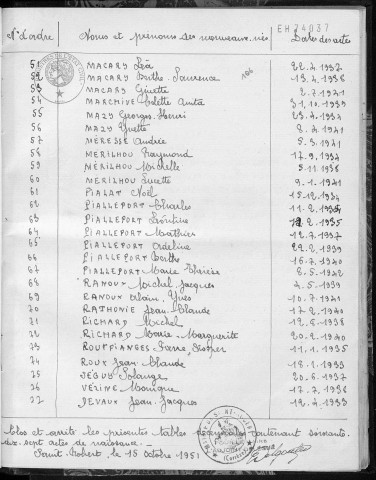 EH 24037
N° d'ordre Noms et prénoms des nouveaux-nés Dates des actes
51 MACARY Léa 22.4.1937
52 MACARY Berthe Laurence 13.4.1938
53 MACARY Ginette 2.7.1941
54 MARCHIVE Arlette Anita 31.10.1939
55 MAZY Georges Henri 23.4.1934
56 MAZY Yvette 8.4.1941
57 MÉRESSE Andrée 5.9.1941
58 MERILHOU Raymond 17.9.1934
59 MÉRILHOU Michelle 5.11.1938
60 MERILHOU Lucette 9.1.1941
61 PIALAT Noël 15.12.1934
62 PIALLEPORT Charles 11.2.1935
63 PIALLEPORT Léontine 12.2.1935
64 PIALLEPORT Mathieu 12.7.1937
65 PIALLEPORT Adeline 22.2.1939
66 PIALLEPORT Berthe 16.7.1940
67 PIALLEPORT Marie Thérèse 8.5.1942
68 RANOUX Michel Jacques 4.5.1939
69 RANOUX Alain, Yves 10.7.1941
70 RATHONIE Jean Claude 17.2.1940
71 RICHARD Michel 12.6.1938
72 RICHARD Marie Marguerite 20.2.1940
73 ROUFFIANGES Pierre, 11.1.1935
74 ROUX Jean Claude 18.1.1933
75 SÉGUY Solange 20.6.1937
76 VÉRINE Monique 17.3.1936
77 DEVAUX Jean Jacques 12.4.1933
Clos et arrêté les présentes tables décennales contenant soixante-
dix-sept actes de naissance.
Saint-Robert, le 15 octobre 1951